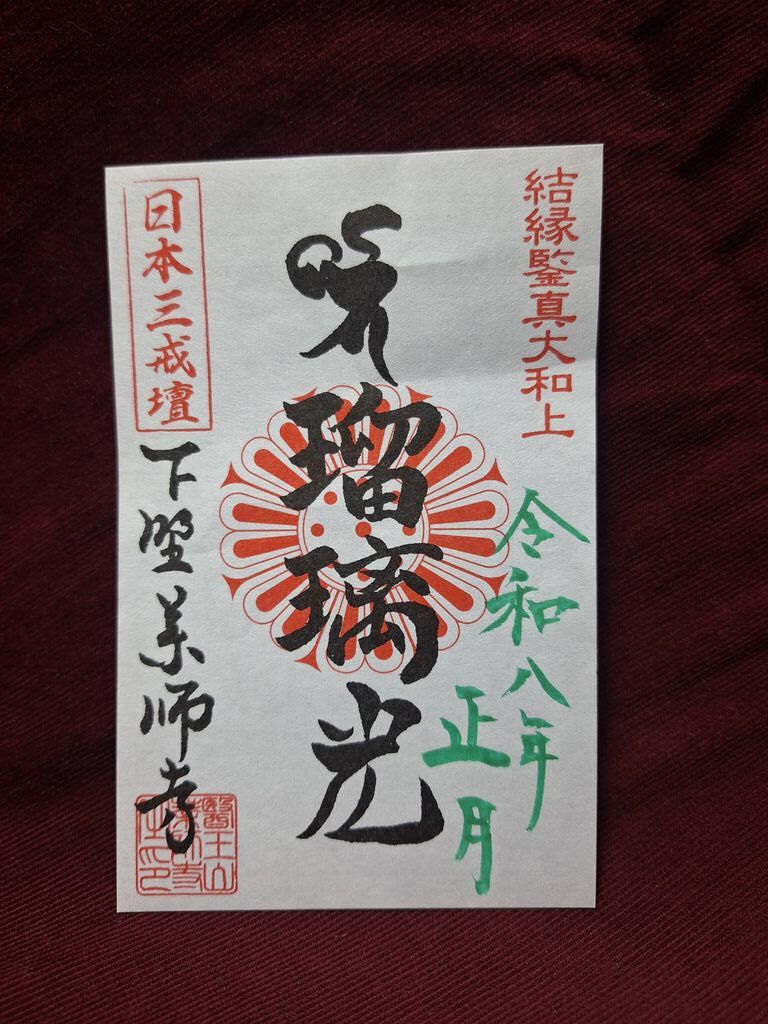 結縁鑒真大和上
令和八年
正月
瑠璃光
日本三戒壇
下野薬師寺